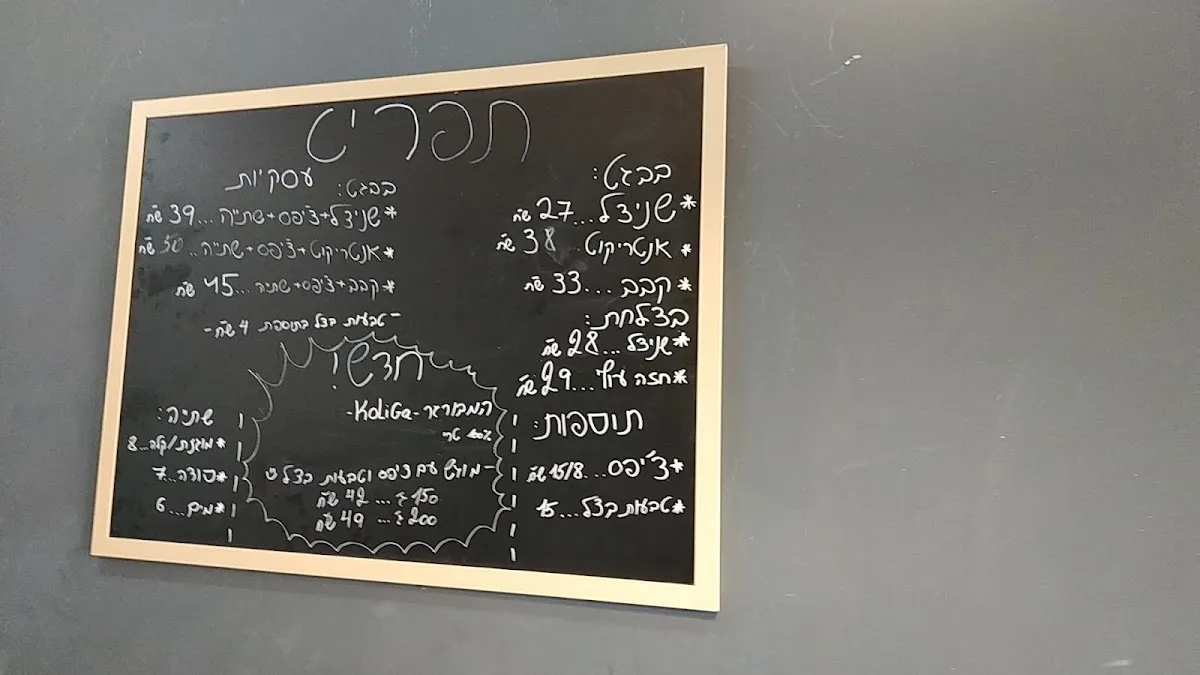 תפריט
בבגט:
* שניצל...27 שח
* אנטריקוט...38 שח
* קבב...33 שח
בצלחת:
* שניצל...28 שח
* חזה עוף...29 שח
תוספות:
* צ'יפס...15/8 שח
* טבעות בצל...15
עסקיות
בבגט:
* שניצל+צ'יפס+שתייה...39 שח
* אנטריקוט+צ'יפס+שתייה...50 שח
* קבב+צ'יפס+שתיה...45 שח
- טבעות בצל בתוספת 4 שח -
חדש!
המבורגר -KoLiGa-
100% טרי
- מוגש עם צ'יפס וטבעות בצל
150 ג'...42 שח
200 ג'...49 שח
שתיה:
* מוגזת/קלה...8
* סודה...7
* מים...6